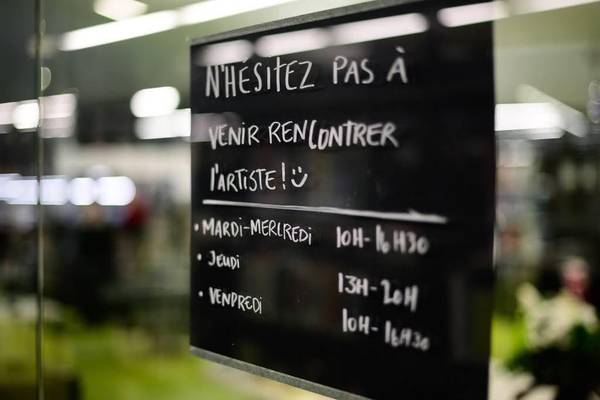 N'HÉSITEZ PAS À
VENIR RENCONTRER
l'ARTISTE! :)
• MARDI-MERCREDI 10H-16H30
• JEUDI 13H-20H
• VENDREDI 10H-16H30